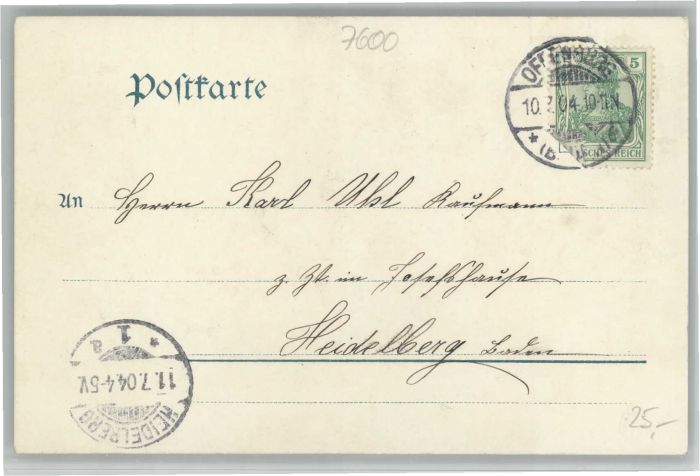 7600
Postkarte
5
OFFENBURG
10.7.04.10-11N
* (BADEN)
REICH
An Herrn Karl Uhl Kaufmann
z. Zt. im Josefshause
Heidelberg Baden
* 1 a
11.7.04.4-5V.
HEIDELBERG
25,-